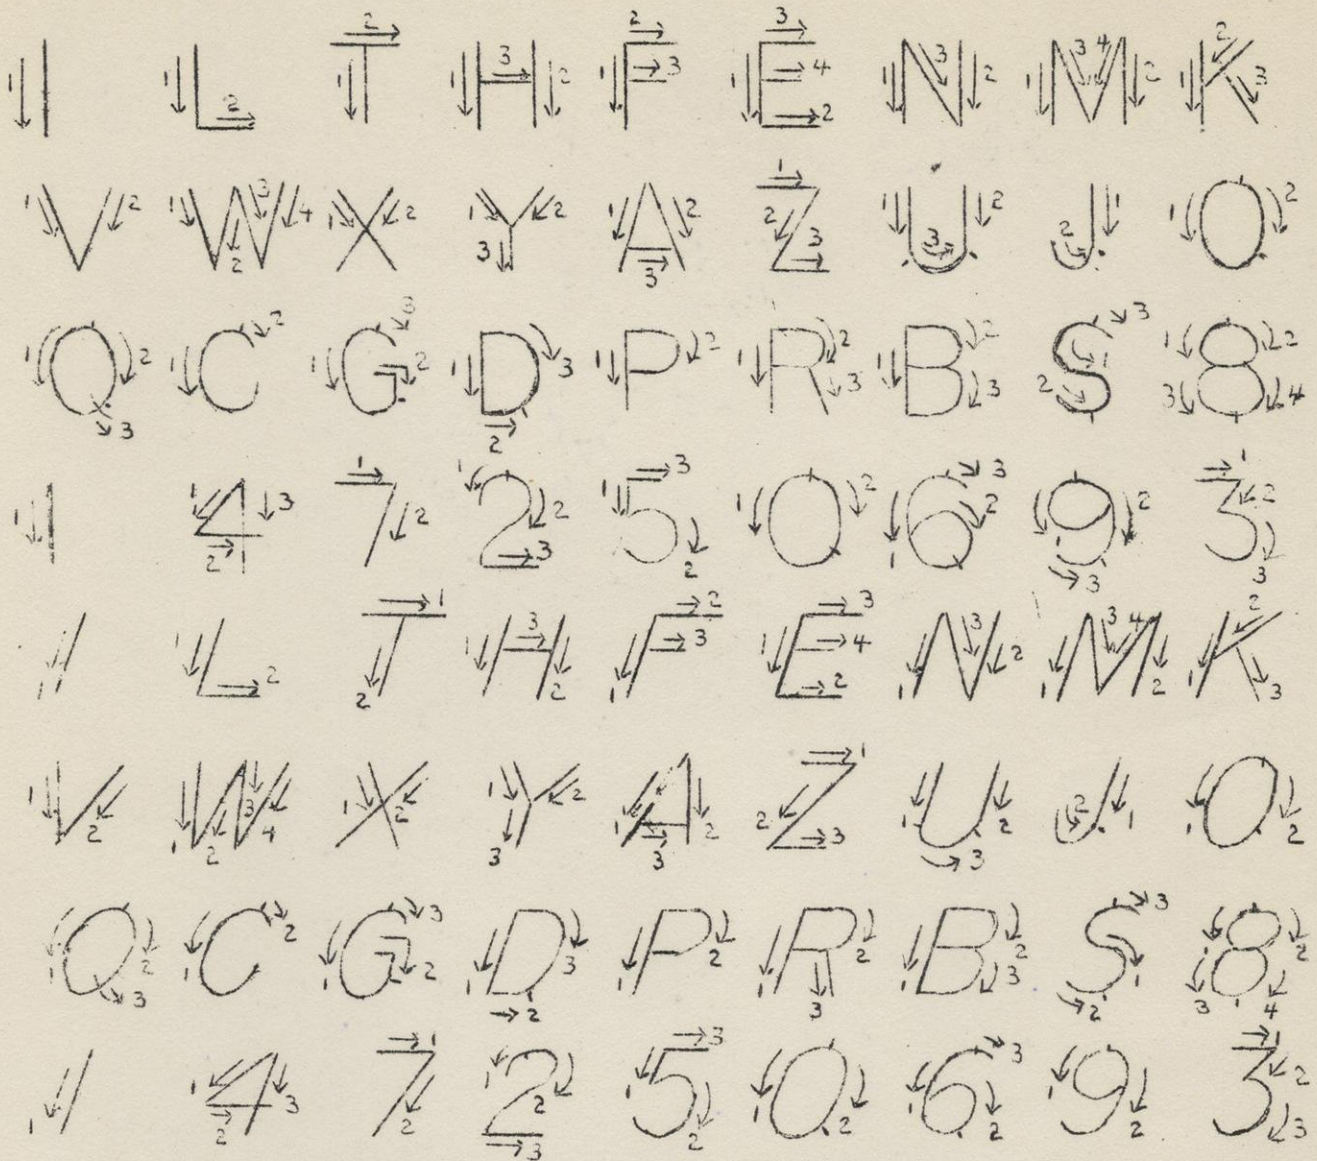 I L T H F E N M K
V W X Y A Z U J O
Q C G D P R B S 8
1 4 7 2 5 0 6 9 3
I L T H F E N M K
V W X Y A Z U J O
Q C G D P R B S 8
1 4 7 2 5 0 6 9 3